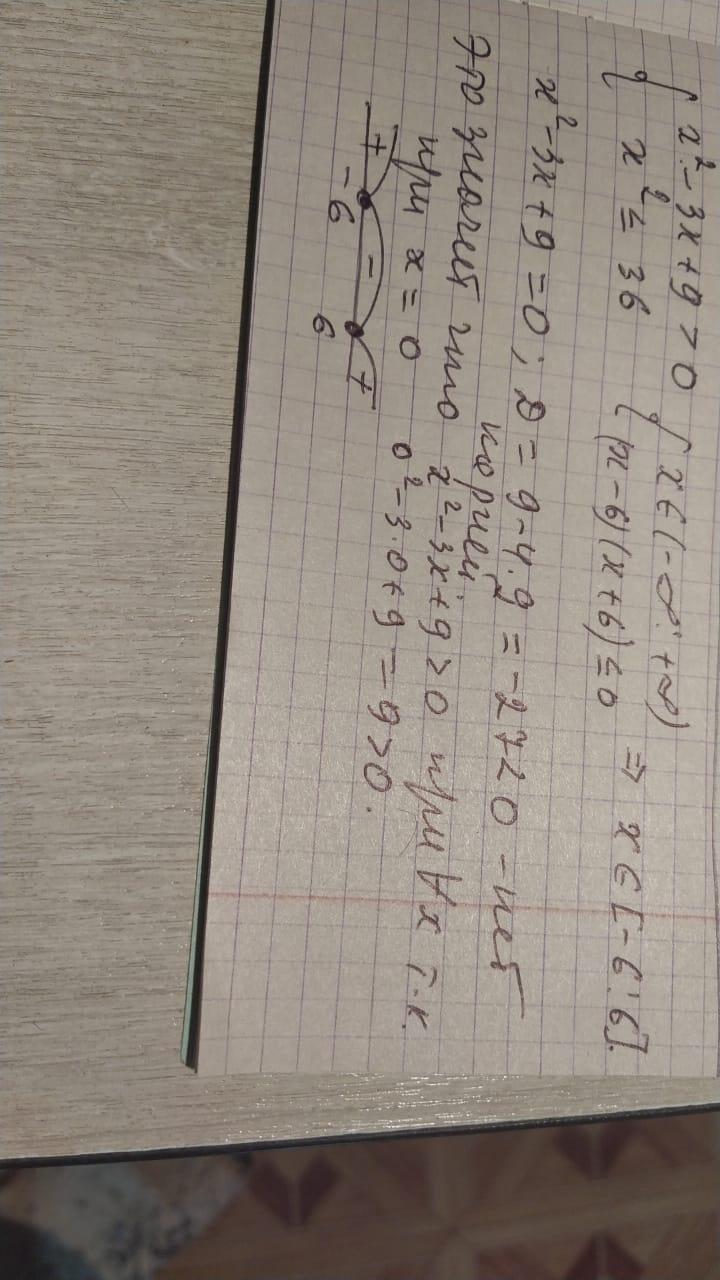 { x² - 3x + 9 > 0 { x ∈ (-∞; +∞)
{ x² ≤ 36 { (x - 6)(x + 6) ≤ 0 ⇒ x ∈ [-6; 6].
x² - 3x + 9 = 0; D = 9 - 4·9 = -27 < 0 - нет
корней.
Это значит что x² - 3x + 9 > 0 при ∀x т.к.
при x = 0 0² - 3·0 + 9 = 9 > 0.
+ - +
-6 6